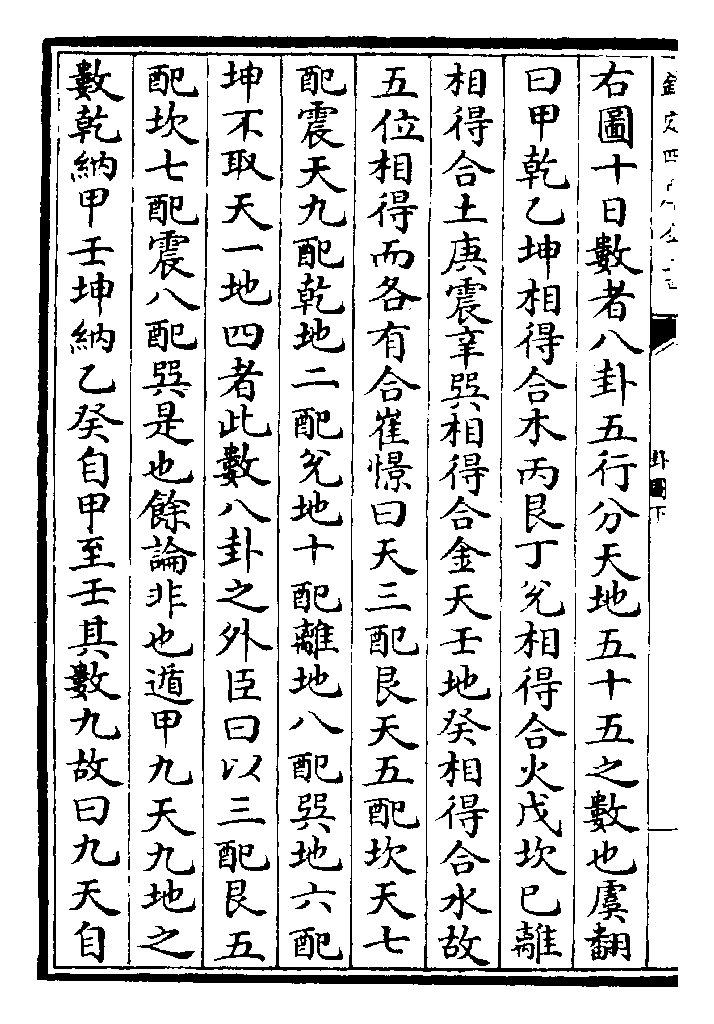 右圖十日數者八卦五行分天地五十五之數也虞翻
曰甲乾乙坤相得合木丙艮丁兌相得合火戊坎己離
相得合土庚震辛巽相得合金天壬地癸相得合水故
五位相得而各有合崔憬曰天三配艮天五配坎天七
配震天九配乾地二配兌地十配離地八配巽地六配
坤不取天一地四者此數八卦之外臣曰以三配艮五
配坎七配震八配巽是也餘論非也遁甲九天九地之
數乾納甲壬坤納乙癸自甲至壬其數九故曰九天自
卦圖下